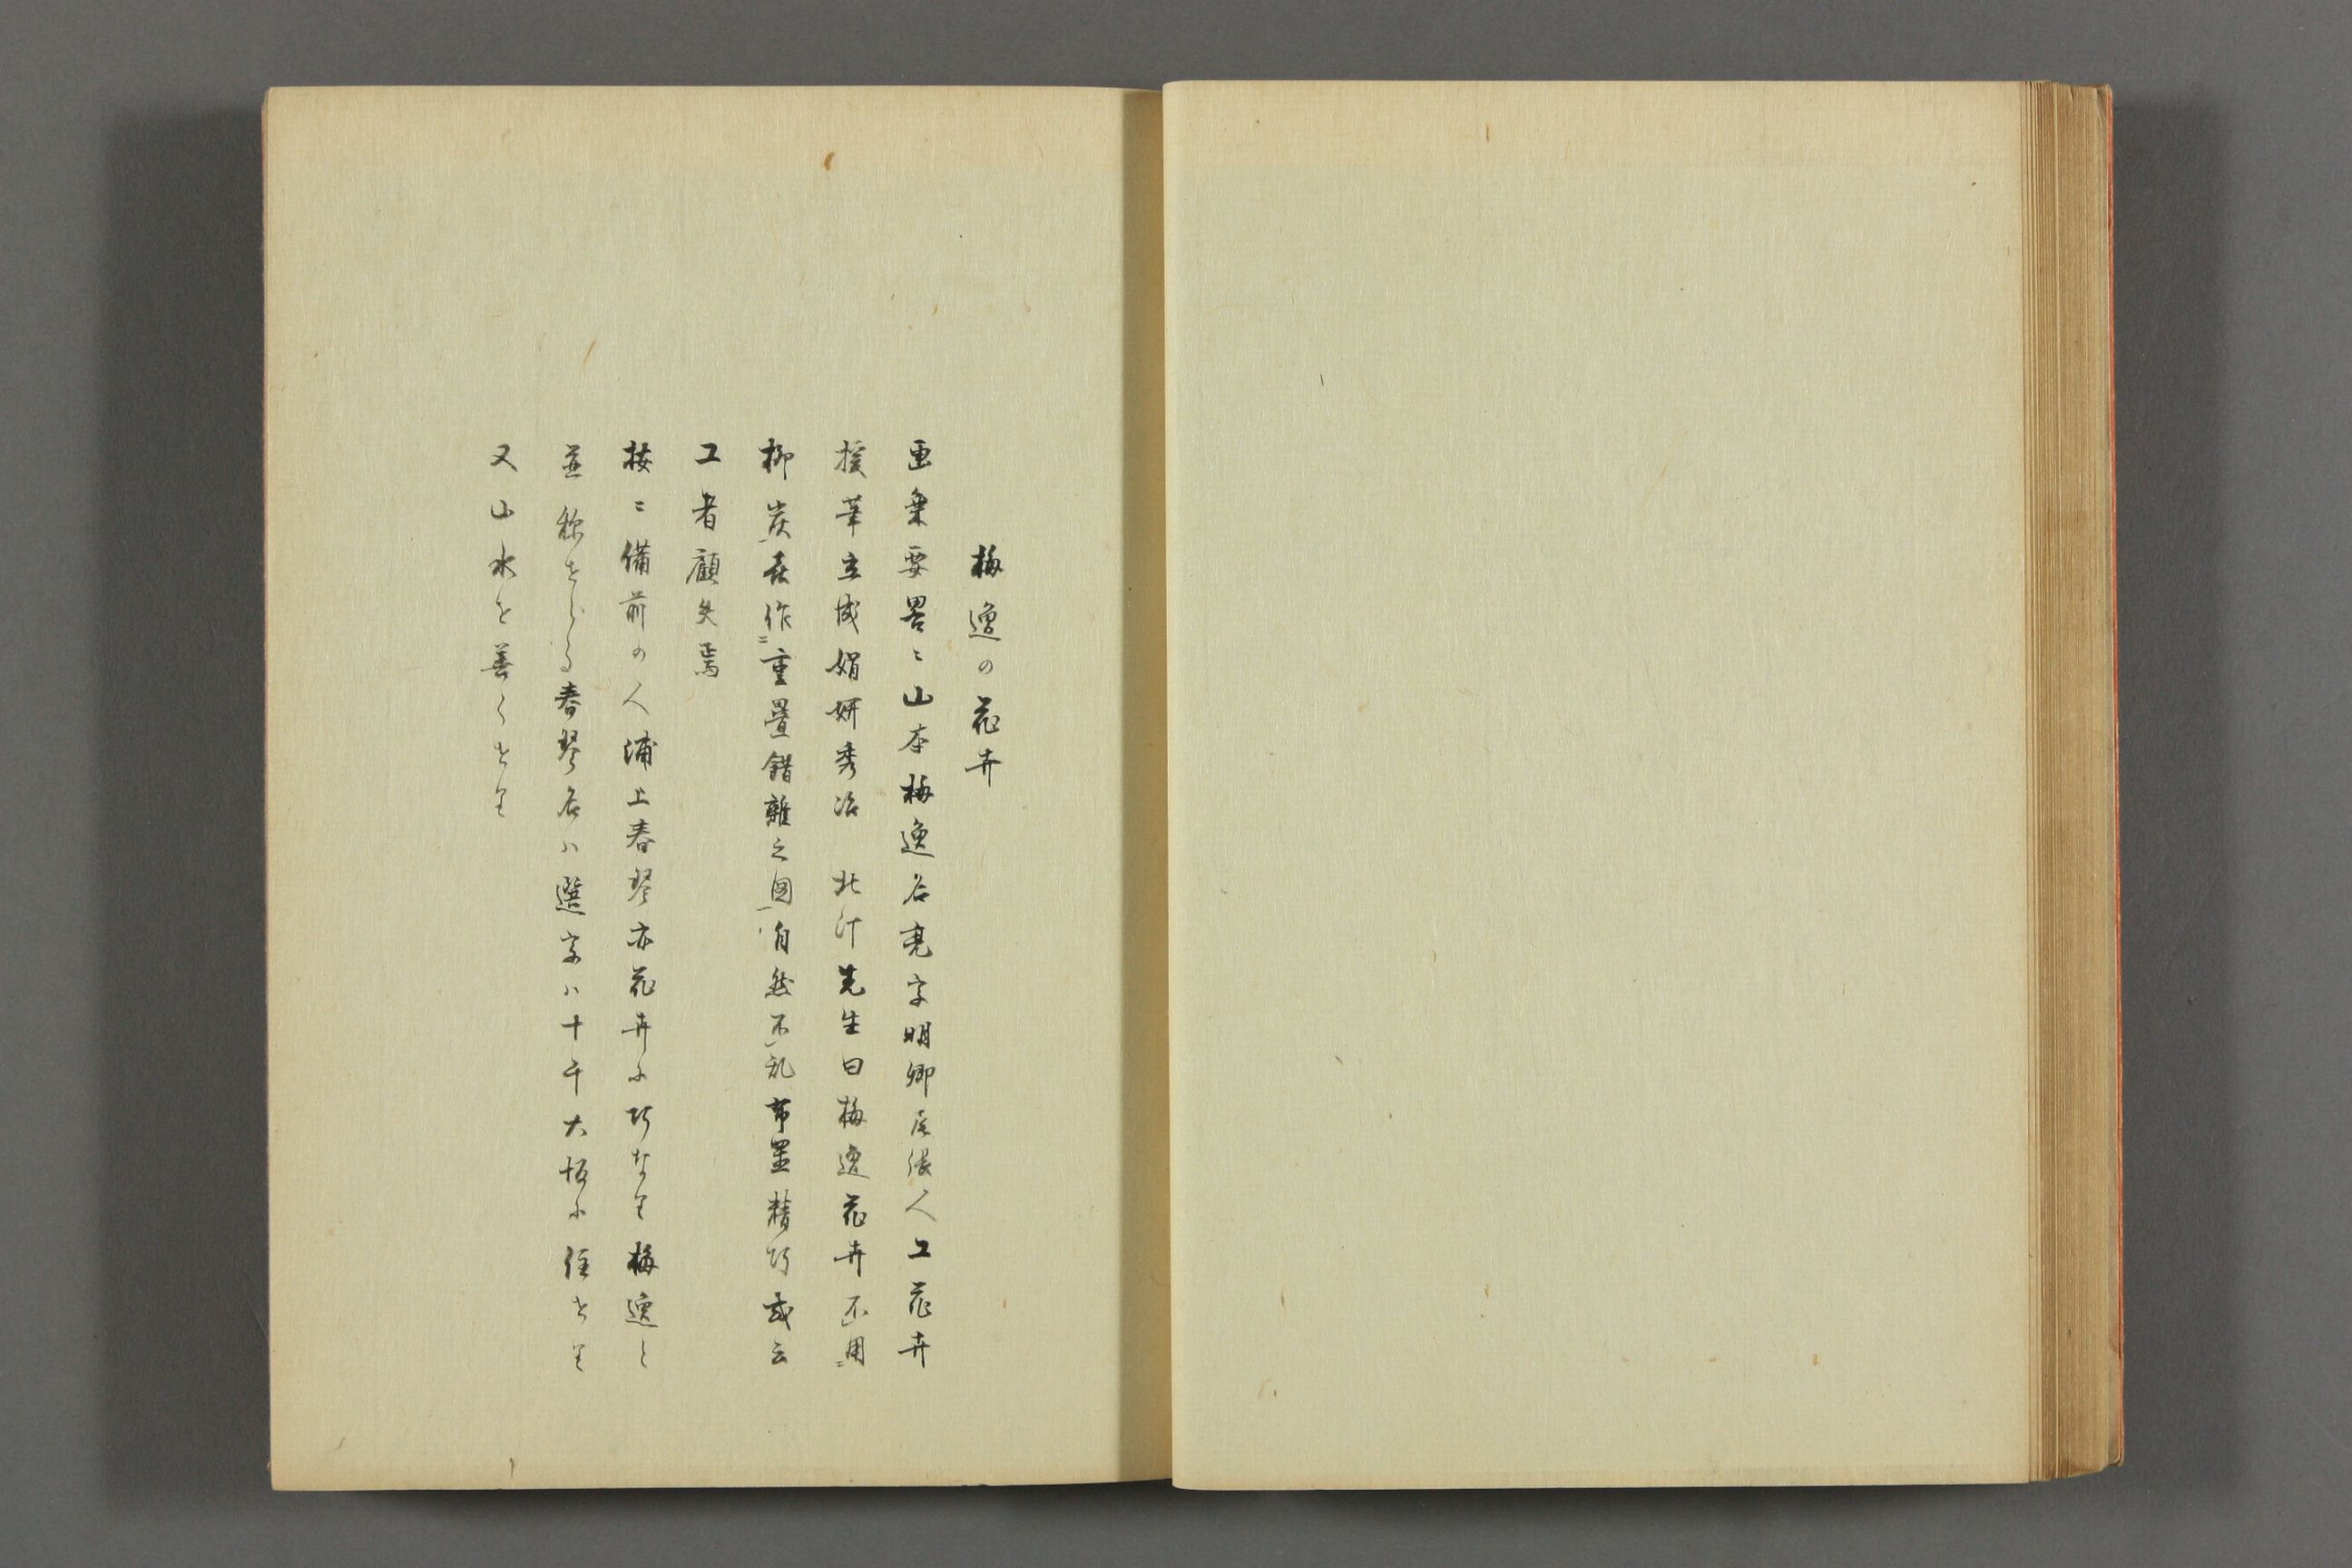 梅逸の花卉
画乗要畧ニ山本梅逸名亮字明卿尾張人工花卉
援筆立成娟妍秀冶　北汀先生曰梅逸花卉不用
柳炭喜作重畳錯雑之図自然不乱布置精巧或云
工者顧失焉
按ニ備前の人浦上春琴亦花卉に巧なり梅逸と
並称せらる春琴名ハ選字ハ十千大坂に住せり
又山水を善くせり